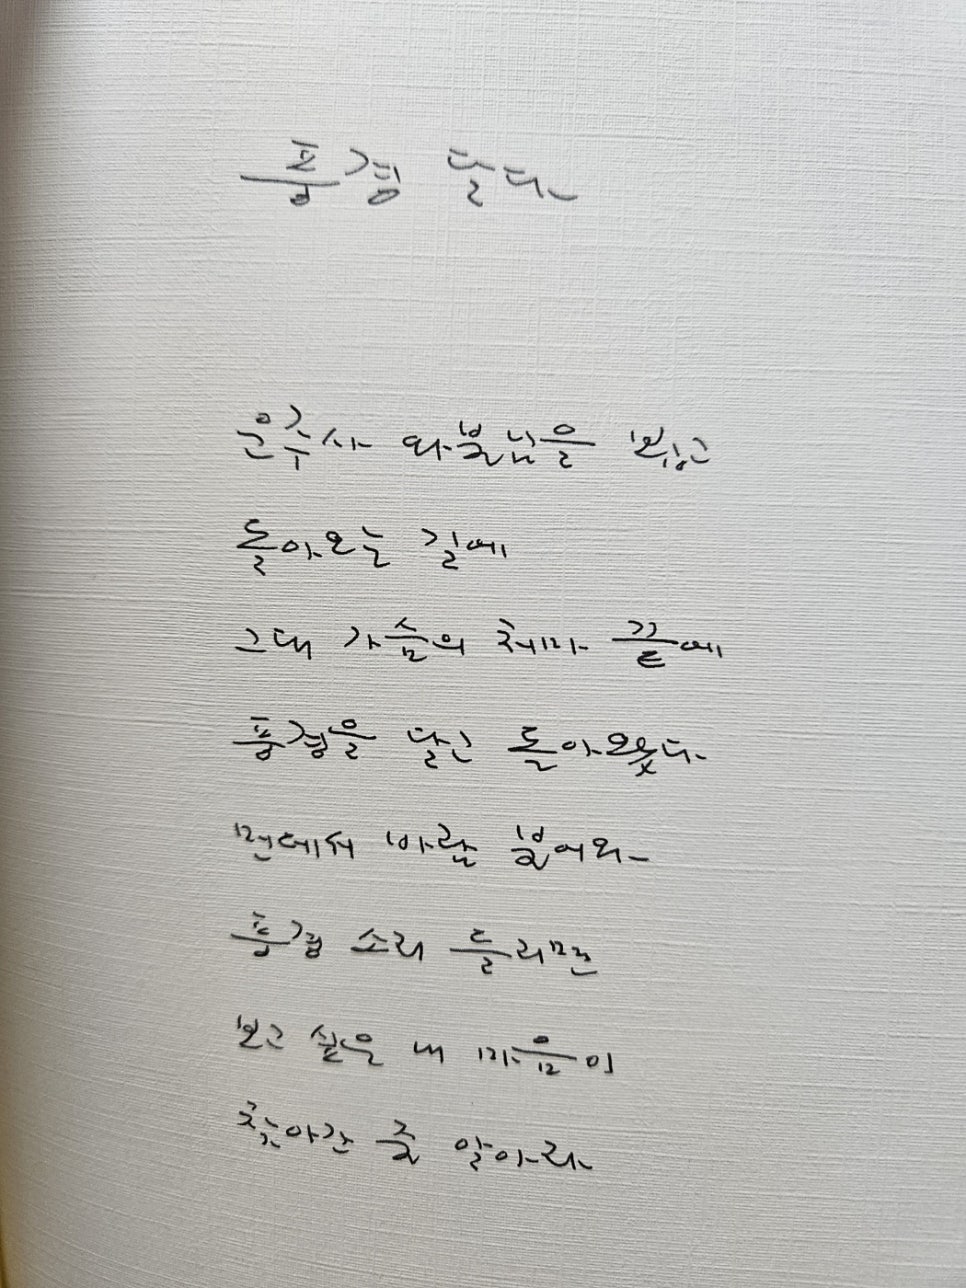 풍경 달다
운주사 와불님을 뵙고
돌아오는 길에
그대 가슴의 처마 끝에
풍경을 달고 돌아왔다
먼데서 바람 불어와
풍경 소리 들리면
보고 싶은 내 마음이
찾아간 줄 알아라